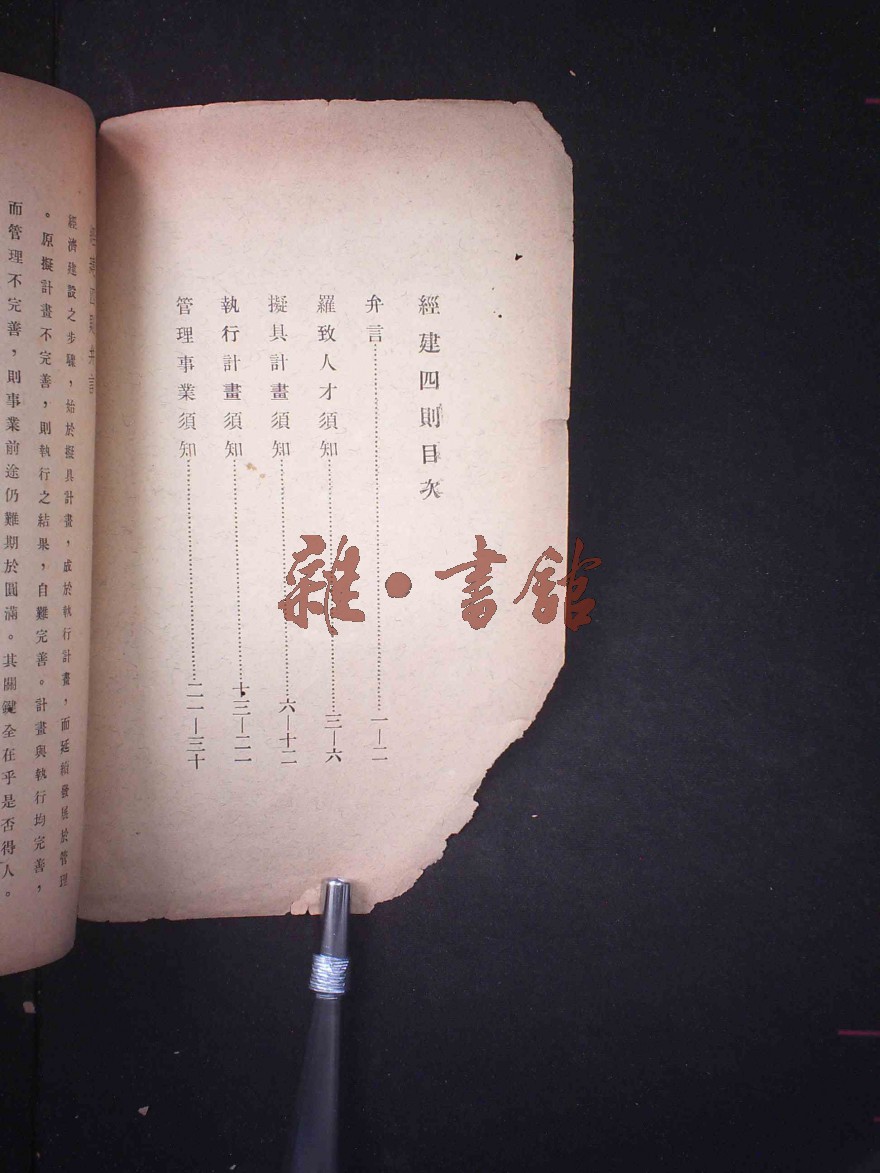 經建四則目次
弁言……一—二
羅致人才須知……三—六
擬具計畫須知……六—十二
執行計畫須知……十三—二一
管理事業須知……二一—三十
經建四則弁言
經濟建設之步驟，始於擬具計畫，成於執行計畫，而延續發展於管理
。原擬計畫不完善，則執行之結果，自難完善。計畫與執行均完善，
而管理不完善，則事業前途仍難期於圓滿。其關鍵全在乎是否得人。
雜·書館